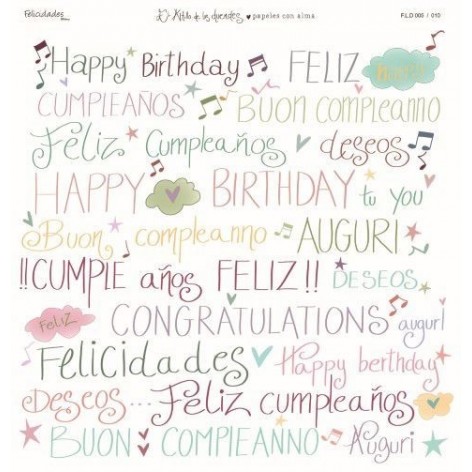 Felicidades
El Altillo de los duendes ♥ papeles con alma
FLD 003 / 010
Happy Birthday FELIZ
CUMPLEAÑOS BUON COMPLEANNO
Feliz Cumpleaños deseos
HAPPY BIRTHDAY tu you
Buon compleanno AUGURI
!!CUMPLE años FELIZ!! DESEOS
FELIZ CONGRATULATIONS auguri
FELICIDADES Happy berthday
Deseos... Feliz cumpleaños
BUON COMPLEANNO Auguri